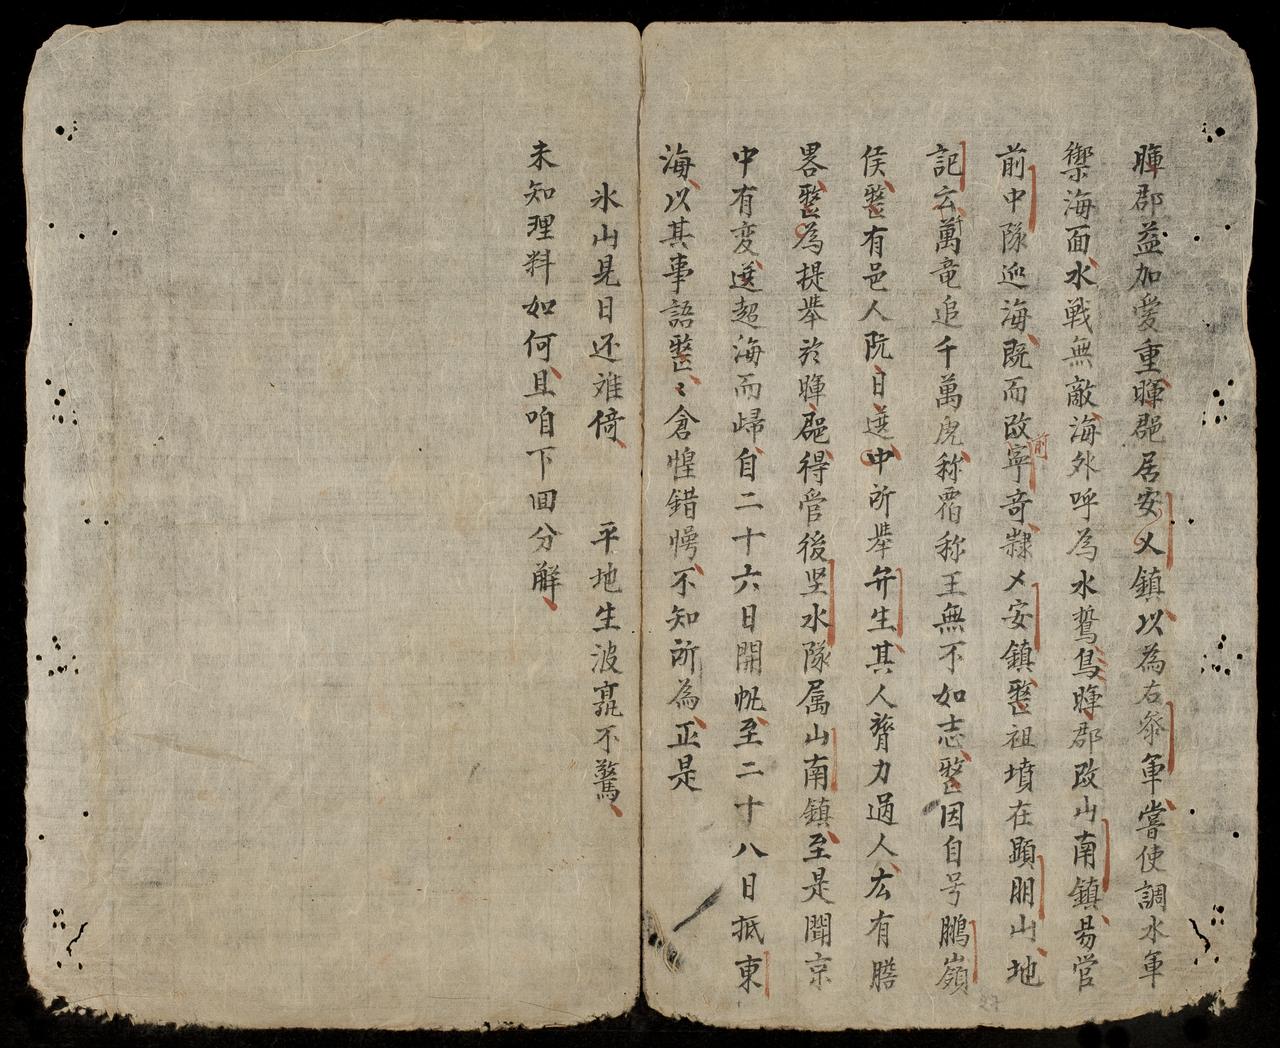 暉郡益加爱重暉郡居安乂鎮以為右參軍嘗使調水軍
禦海面水戦無敵海外呼為水鷙鳥暉郡改山南鎮昜管
前中隊巡海既而改寧竒隸乂安鎮整祖墳在顕朋山地
前
記云萬竜追千萬虎称覇称王無不如志整因自号鵬嶺
侯整有邑人阮曰逆中所舉弁生其人膂力過人厷有膽
畧整為提舉於暉郡得管後坚水隊属山南鎮至是聞京
中有変逆超海而歸自二十六日開帆至二十八日抵東
海以其事語整〻倉惶錯愕不知所為正是
氷山見日还难倚 平地生波髙不驚
未知理料如何且咱下囬分觧
27